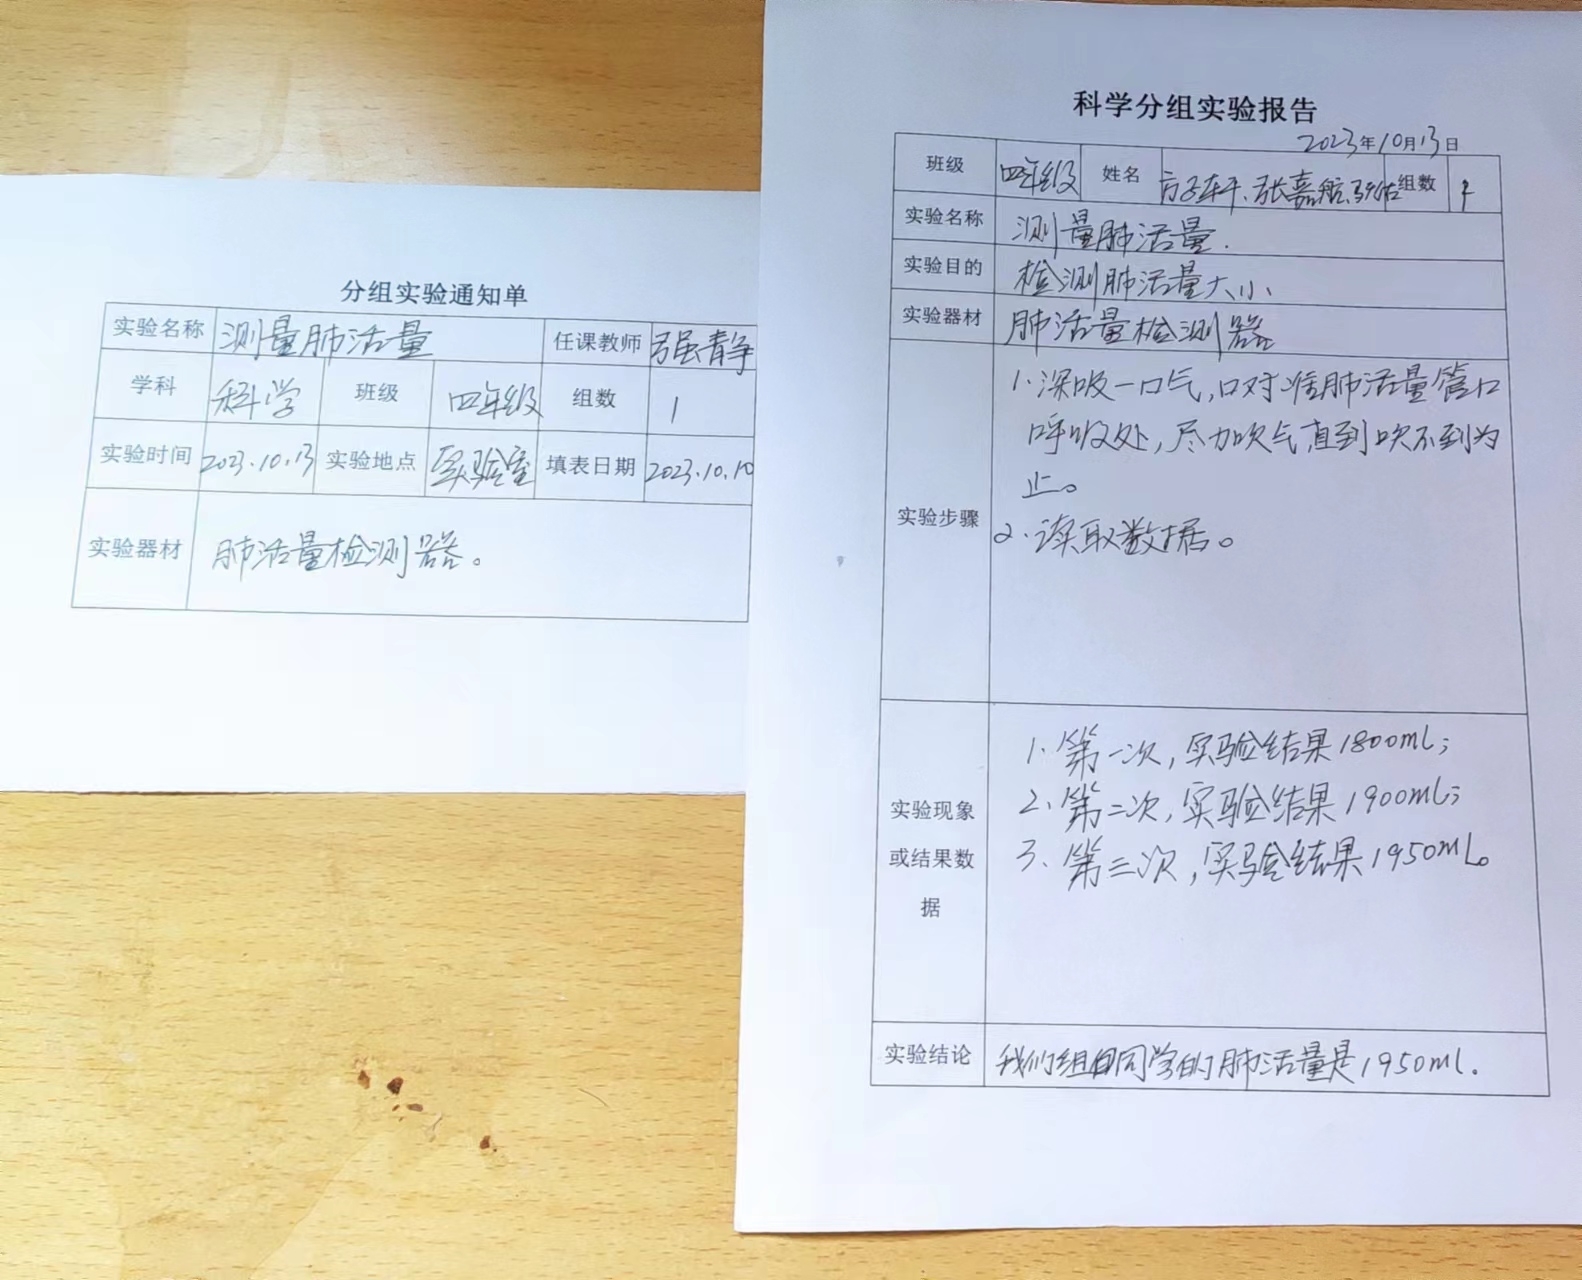 分组实验通知单
实验名称 测量肺活量 任课教师 强静
学科 科学 班级 四年级 组数 1
实验时间 2023.10.13 实验地点 实验室 填表日期 2023.10.10
实验器材 肺活量检测器。
科学分组实验报告
2023年10月13日
班级 四年级 姓名 张嘉航、 组数
实验名称 测量肺活量.
实验目的 检测肺活量大小、
实验器材 肺活量检测器
实验步骤
1.深吸一口气,口对准肺活量管口
呼吸处,尽力吹气,直到吹不到为
止。
2.读取数据。
实验现象
或结果数
据
1.第一次,实验结果1800ml;
2、第二次,实验结果1900ml;
3、第三次,实验结果1950ml。
实验结论 我们组同学的肺活量是1950ml.